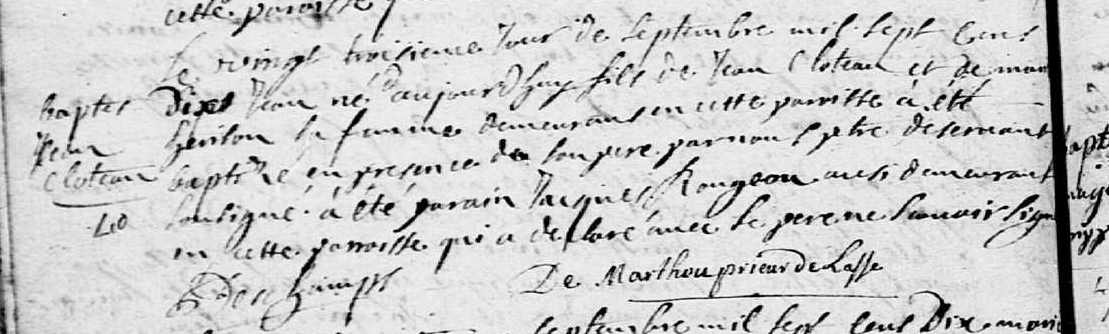 cette paroisse
Le vingt troisieme Jour de Septembre mil sept Cens
Dix Jean né d'aujourd'huy fils de Jean Cloteau et de marie
baptes
Jean
Cloteau
40
sa femme demeurans en cette parroisse à été
baptizé en presence de son pere par nous pbre deservant
soubsigné. à été parain Jacques Rougeou aussi demeurant
en cette parroisse qui a declaré avec le pere ne scavoir signer
Deschamps De Marthou prieur de Lasse
septembre mil sept cens Dix